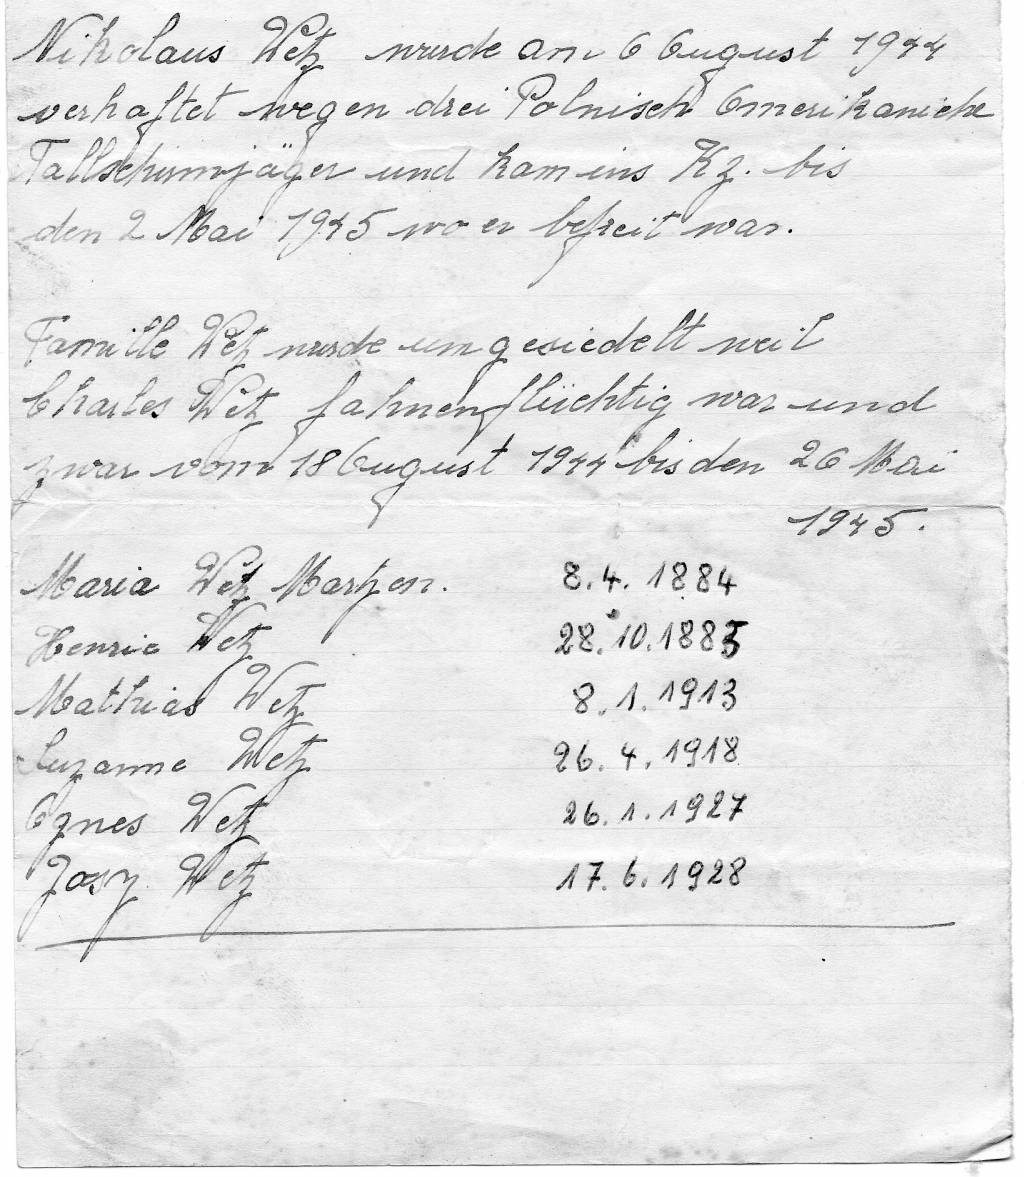 Nikolaus Wetz wurde am 6 August 1944
verhaftet wegen drei Polnisch Amerikaniche
Fallschirmjäger und kam ins Kz. bis
den 2 Mai 1945 wo er befreit war.
Famille Wetz wurde umgesiedelt weil
Charles Wetz fahnenflüchtig war und
zwar vom 18 August 1944 bis den 26 Mai
1945.
Maria Wetz Martzen. 8.4.1884
Henrie Wetz 28.10.1885
Mathias Wetz 8.1.1913
Suzanne Wetz 26.4.1918
Agnes Wetz 26.1.1927
Josy Wetz 17.6.1928